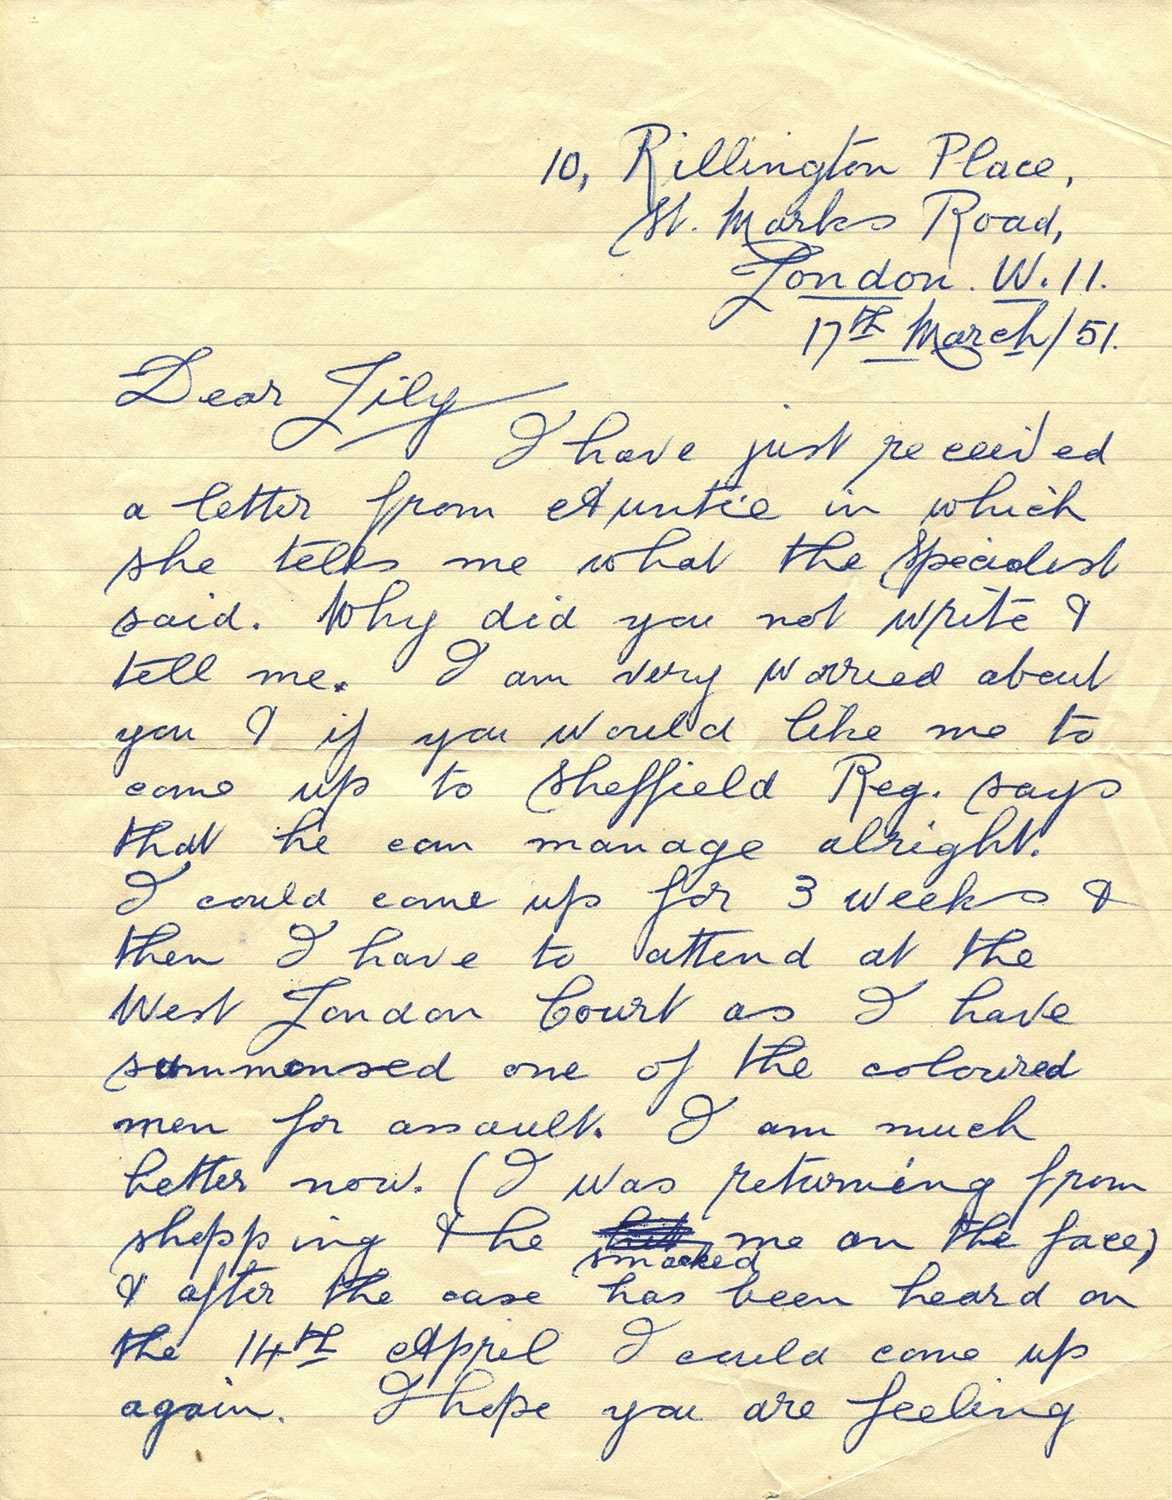 10, Rillington Place,
St. Marks Road,
London. W. 11.
17th March/51.
Dear Lily
I have just received
a letter from Auntie in which
she tells me what the Specialist
said. Why did you not write &
tell me. I am very worried about
you & if you would like me to
come up to Sheffield Reg. says
that he can manage alright.
I could come up for 3 weeks &
then I have to attend at the
West London Court as I have
summonsed one of the coloured
men for assault. I am much
better now. (I was returning from
shopping & he hit me on the face)
smacked
& after the case has been heard on
the 14th April I could come up
again. I hope you are feeling